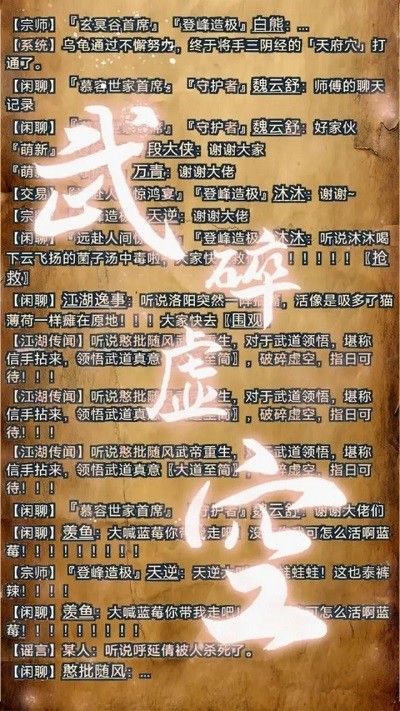 【宗师】『玄冥谷首席』『登峰造极』白熊：…
【系统】乌龟通过不懈努力，终于将手三阴经的「天府穴」打
通了。
【闲聊】『慕容世家首席』『守护者』魏云舒：师傅的聊天
记录
【闲聊】『慕容世家首席』『守护者』魏云舒：好家伙
『萌新』段大侠：谢谢大家
万青：谢谢大佬
【交易】惊鸿宴』『登峰造极』沐沐：谢谢~
造极』天逆：谢谢大佬
【闲聊】『远赴人间惊沐沐：听说沐沐喝
下云飞扬的菌子汤中毒啦，大家快！！！！！〖抢
救〗
【闲聊】江湖逸事：听说洛阳突然一阵，活像是吸多了猫
薄荷一样瘫在原地！！！大家快去〖围观〗
【江湖传闻】听说憨批随风重生，对于武道领悟，堪称
信手拈来，领悟武道真意至简〗，破碎虚空，指日可
待！！！
【江湖传闻】听说憨批随风重生，对于武道领悟，堪称
信手拈来，领悟武道真意至简〗，破碎虚空，指日可
待！！！
【江湖传闻】听说憨批随风武帝重生，武道领悟，堪称
信手拈来，领悟武道真意〖大道至简〗，虚空，指日可
待！！！
【闲聊】『慕容世家首席』守护者』魏云舒：谢谢大佬们
【闲聊】羡鱼：大喊蓝莓你带我走吧！没可怎么活啊蓝
莓！！！！！！！！！
【宗师】『登峰造极』天逆：天逆大蛙蛙蛙！这也泰裤
辣！！！！
【闲聊】羡鱼：大喊蓝莓你带我走吧！可怎么活啊蓝
莓！！！！！！！！！
【谣言】某人：听说呼延倩被人杀死了。
【闲聊】憨批随风：…
武
碎
虚
空